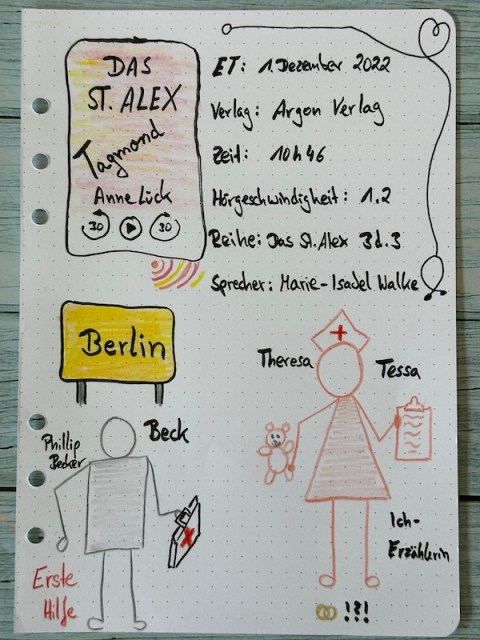 DAS
ST. ALEX
Tagmond
Anne Lück
30 30
ET: 1. Dezember 2022
Verlag: Argon Verlag
Zeit: 10h46
Hörgeschwindigkeit: 1.2
Reihe: Das St. Alex Bd. 3
Sprecher: Marie-Isabel Walke
Berlin
Theresa
Tessa
Beck
Phillip
Becker
Ich-
Erzählerin
Erste
Hilfe
!?!